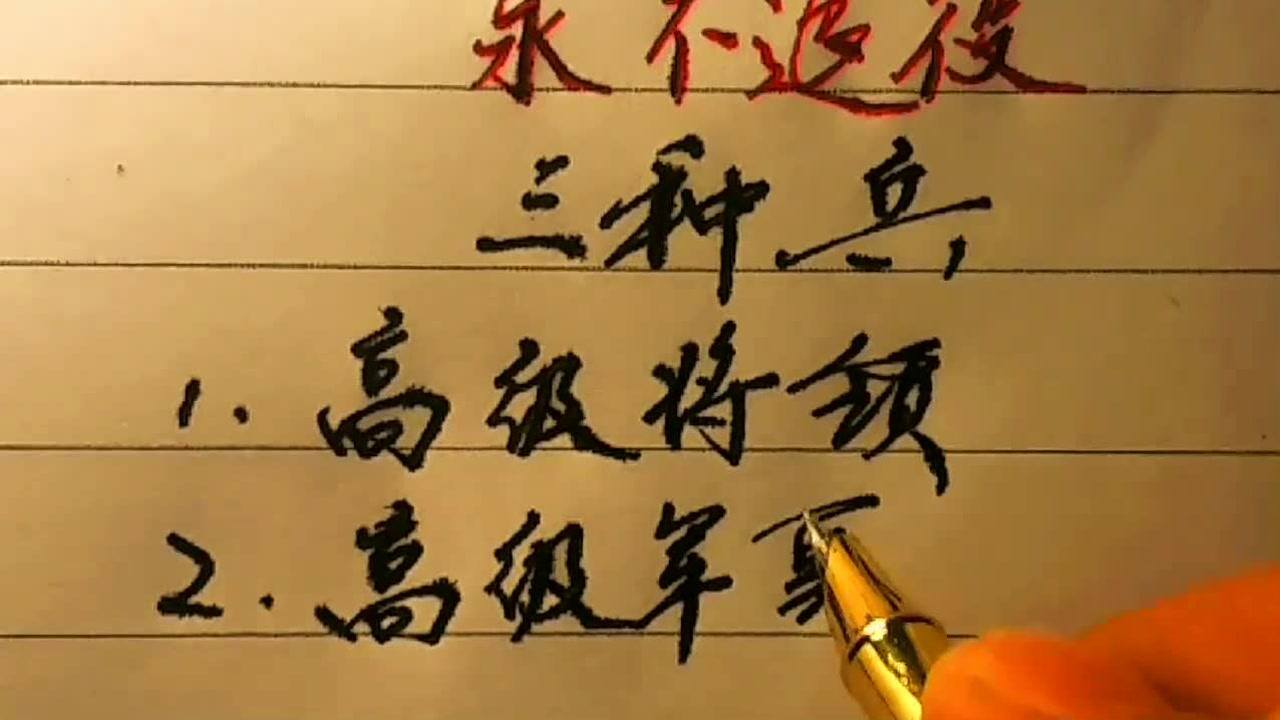 永不退役
三种兵,
1.高级将领
2.高级军